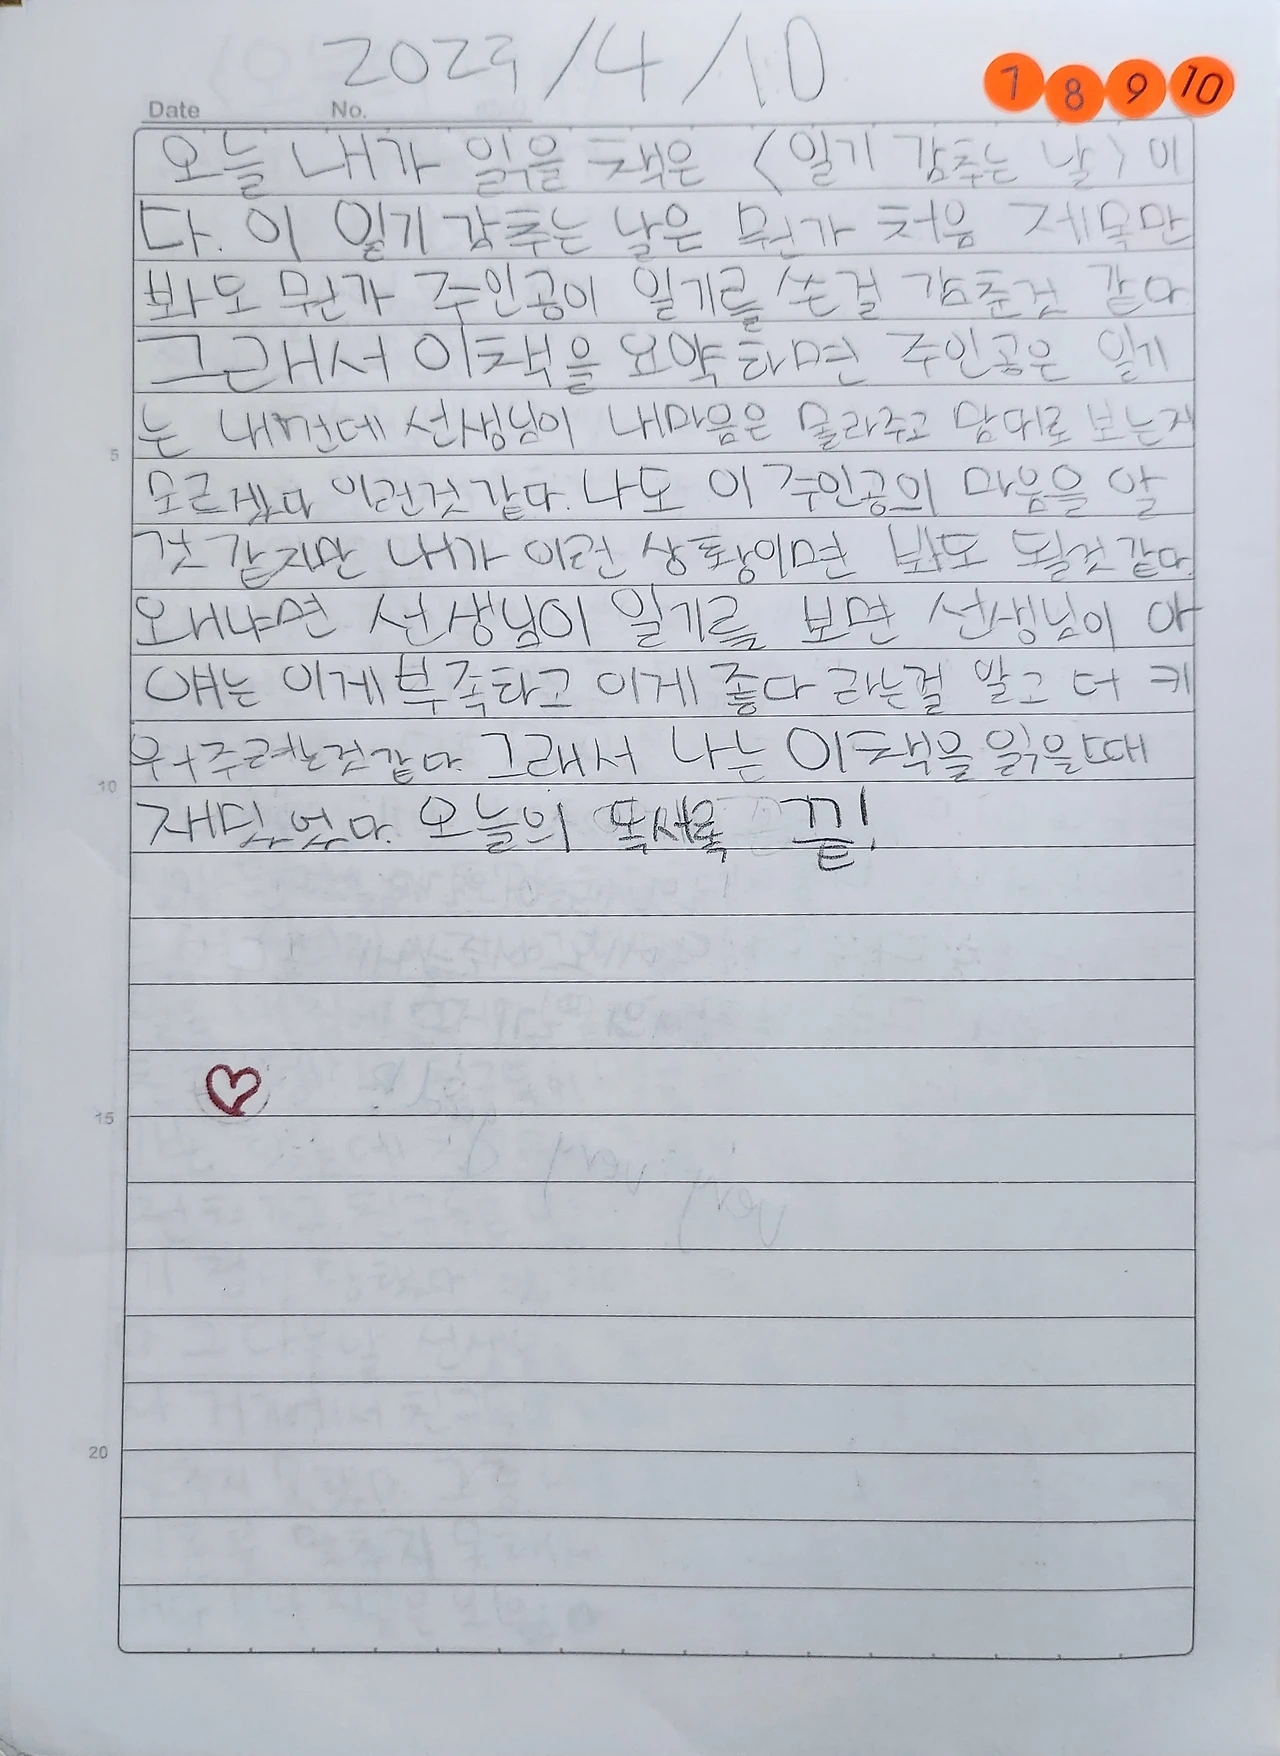 2025/4/10
7 8 9 10
Date No.
오늘 내가 읽을 책은 〈일기 감추는 날〉이
다. 이 일기 감추는 날은 뭔가 처음 제목만
봐도 뭔가 주인공이 일기를 쓴걸 감춘것 같다
그래서 이책을 요약하면 주인공은 일기
는 내껀데 선생님이 내마음은 몰라주고 맘대로 보는지
5
모르겠다 이런것 같다. 나도 이 주인공의 마음을 알
것 같지만 내가 이런 상황이면 봐도 될것 같다.
왜냐면 선생님이 일기를 보면 선생님이 아
얘는 이게 부족하고 이게 좋다 라는걸 알고 더 키
워주려는것같다. 그래서 나는 이책을 읽을때
10
재밌었다. 오늘의 독서록 끝!
15
20